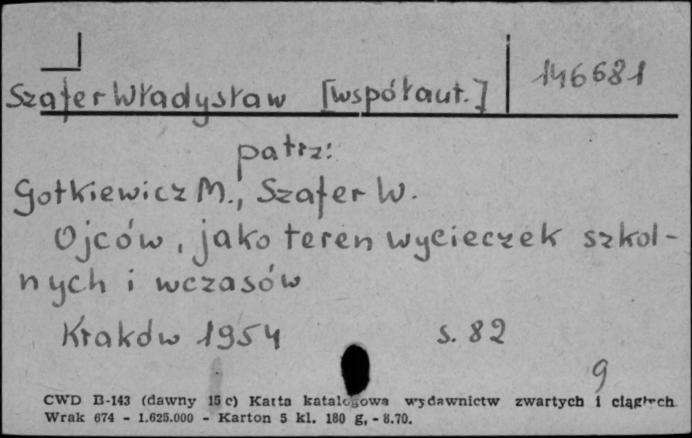 Szafer Władysław [współaut.] 146681
patrz:
Gotkiewicz M., Szafer W.
Ojców, jako teren wycieczek szkol-
nych i wczasów
Kraków 1954 s. 82
9
CWD B-143 (dawny 15 c) Karta katalogowa wydawnictw zwartych i ciągłych
Wrak 674 - 1.625.000 - Karton 5 kl. 180 g, - 8.70.